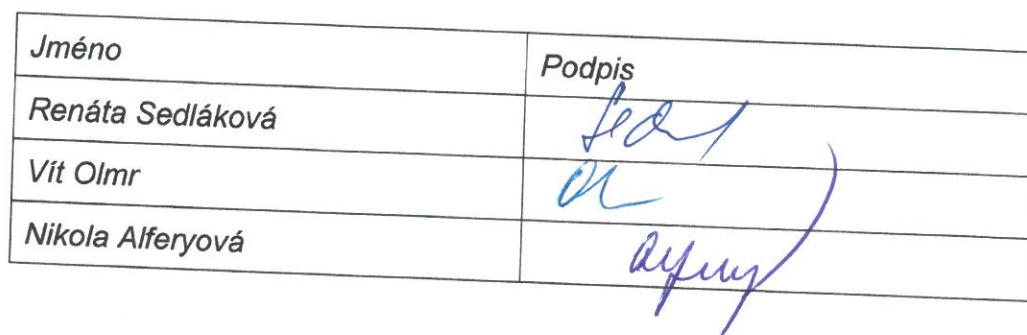 Jméno Podpis
Renáta Sedláková
Vít Olmr
Nikola Alferyová